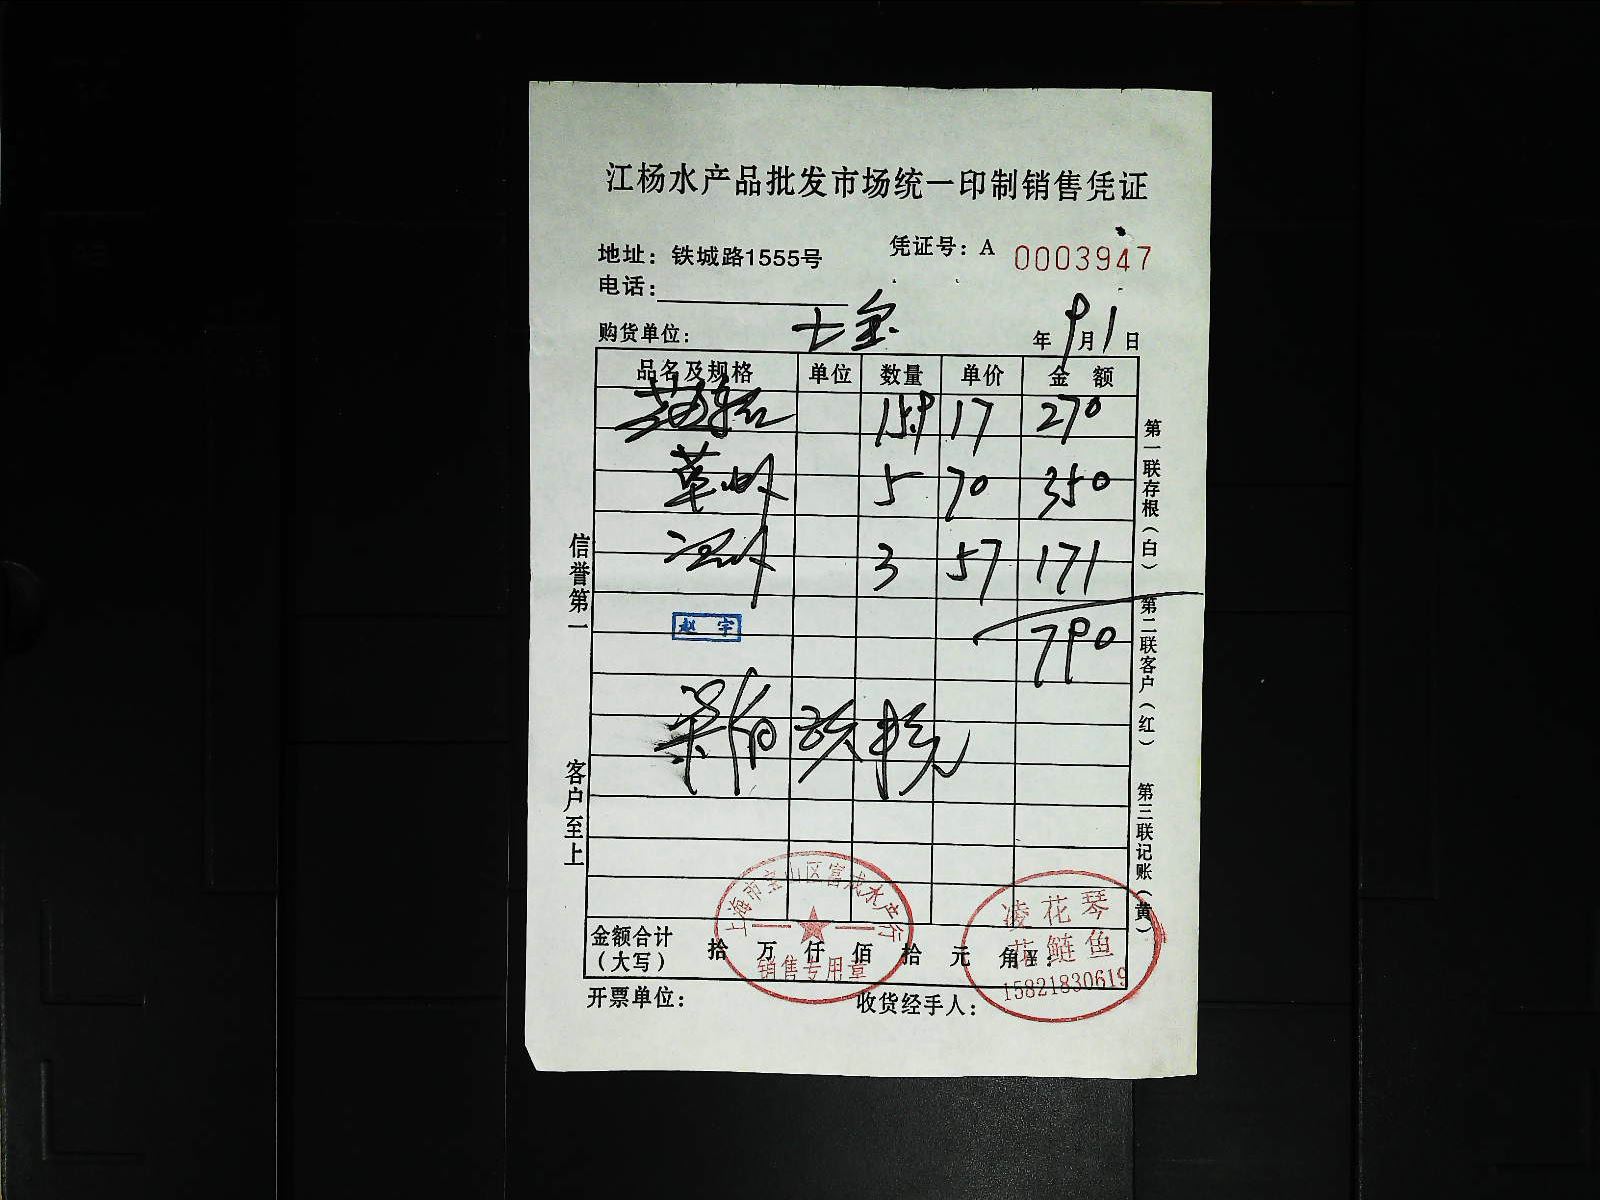 江杨水产品批发市场统一印制销售凭证
地址：铁城路1555号 凭证号：A 0003947
电话：
购货单位： 七宝 年 9月1日
品名及规格 单位 数量 单价 金额
15.9 17 270
草 5 70 350
3 57 171
赵宇
790
信誉第一
客户至上
第一联存根（白） 第二联客户（红） 第三联记账（黄）
上海市宝山区富成水产行
销售专用章
凌花琴
花鲢鱼
15821830619
金额合计（大写） 拾 万 仟 佰 拾 元 角
开票单位： 收货经手人：